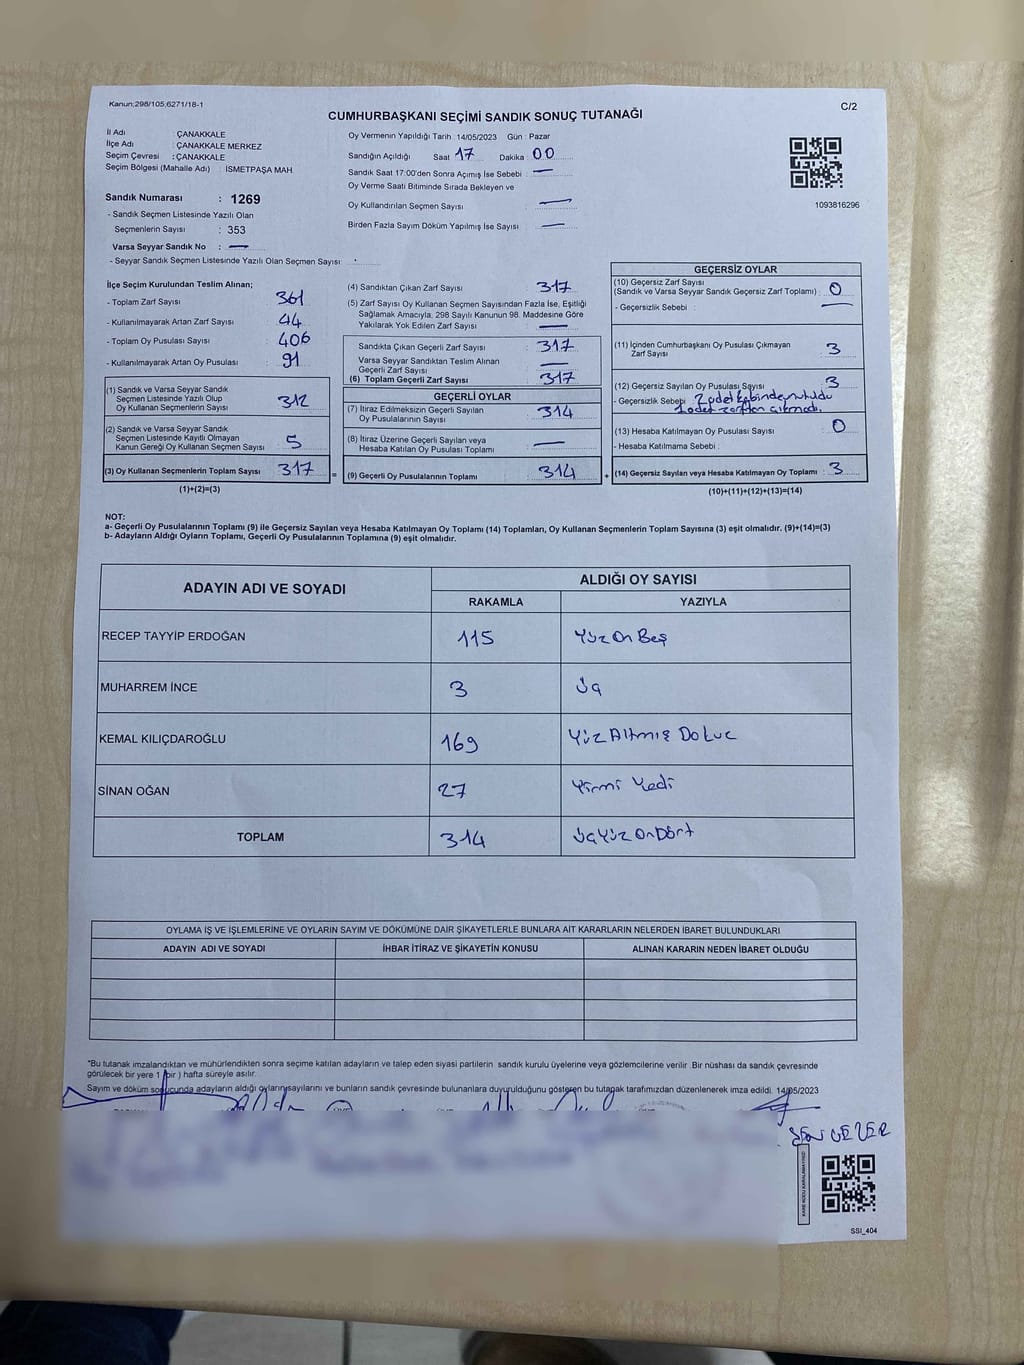 Kanun;298/105,6271/18-1
C/2
CUMHURBAŞKANI SEÇİMİ SANDIK SONUÇ TUTANAĞI
İl Adı : ÇANAKKALE
İlçe Adı : ÇANAKKALE MERKEZ
Seçim Çevresi : ÇANAKKALE
Seçim Bölgesi (Mahalle Adı) : İSMETPAŞA MAH
Oy Vermenin Yapıldığı Tarih : 14/05/2023 Gün : Pazar
Sandığın Açıldığı Saat 17 Dakika : 00
Sandık Saat 17:00'den Sonra Açımış İse Sebebi : —
Oy Verme Saati Bitiminde Sırada Bekleyen ve
Oy Kullandırılan Seçmen Sayısı : —
Birden Fazla Sayım Döküm Yapılmış İse Sayısı : —
1093816296
Sandık Numarası : 1269
- Sandık Seçmen Listesinde Yazılı Olan
Seçmenlerin Sayısı : 353
Varsa Seyyar Sandık No : —
- Seyyar Sandık Seçmen Listesinde Yazılı Olan Seçmen Sayısı:
İlçe Seçim Kurulundan Teslim Alınan;
- Toplam Zarf Sayısı : 361
- Kullanılmayarak Artan Zarf Sayısı : 44
- Toplam Oy Pusulası Sayısı : 406
- Kullanılmayarak Artan Oy Pusulası : 91
(1) Sandık ve Varsa Seyyar Sandık
Seçmen Listesinde Yazılı Olup
Oy Kullanan Seçmenlerin Sayısı : 312
(2) Sandık ve Varsa Seyyar Sandık
Seçmen Listesinde Kayıtlı Olmayan
Kanun Gereği Oy Kullanan Seçmen Sayısı : 5
(3) Oy Kullanan Seçmenlerin Toplam Sayısı : 317
(1)+(2)=(3)
(4) Sandıktan Çıkan Zarf Sayısı : 317
(5) Zarf Sayısı Oy Kullanan Seçmen Sayısından Fazla İse, Eşitliği
Sağlamak Amacıyla, 298 Sayılı Kanunun 98. Maddesine Göre
Yakılarak Yok Edilen Zarf Sayısı : —
Sandıkta Çıkan Geçerli Zarf Sayısı : 317
Varsa Seyyar Sandıktan Teslim Alınan
Geçerli Zarf Sayısı : —
(6) Toplam Geçerli Zarf Sayısı : 317
GEÇERLİ OYLAR
(7) İtiraz Edilmeksizin Geçerli Sayılan
Oy Pusulalarının Sayısı : 314
(8) İtiraz Üzerine Geçerli Sayılan veya
Hesaba Katılan Oy Pusulası Toplamı : —
= (9) Geçerli Oy Pusulalarının Toplamı : 314
GEÇERSİZ OYLAR
(10) Geçersiz Zarf Sayısı
(Sandık ve Varsa Seyyar Sandık Geçersiz Zarf Toplamı) : 0
- Geçersizlik Sebebi : —
(11) İçinden Cumhurbaşkanı Oy Pusulası Çıkmayan
Zarf Sayısı : 3
(12) Geçersiz Sayılan Oy Pusulası Sayısı : 3
- Geçersizlik Sebebi : 2 adet kabinde unutuldu
1 adet zarftan çıkmadı.
(13) Hesaba Katılmayan Oy Pusulası Sayısı : 0
- Hesaba Katılmama Sebebi :
+ (14) Geçersiz Sayılan veya Hesaba Katılmayan Oy Toplamı : 3
(10)+(11)+(12)+(13)=(14)
NOT:
a- Geçerli Oy Pusulalarının Toplamı (9) ile Geçersiz Sayılan veya Hesaba Katılmayan Oy Toplamı (14) Toplamları, Oy Kullanan Seçmenlerin Toplam Sayısına (3) eşit olmalıdır. (9)+(14)=(3)
b- Adayların Aldığı Oyların Toplamı, Geçerli Oy Pusulalarının Toplamına (9) eşit olmalıdır.
ADAYIN ADI VE SOYADI ALDIĞI OY SAYISI
RAKAMLA YAZIYLA
RECEP TAYYİP ERDOĞAN 115 Yüz On Beş
MUHARREM İNCE 3 Üç
KEMAL KILIÇDAROĞLU 169 Yüz Altmış Dokuz
SİNAN OĞAN 27 Yirmi Yedi
TOPLAM 314 Üç Yüz On Dört
OYLAMA İŞ VE İŞLEMLERİNE VE OYLARIN SAYIM VE DÖKÜMÜNE DAİR ŞİKAYETLERLE BUNLARA AİT KARARLARIN NELERDEN İBARET BULUNDUKLARI
ADAYIN ADI VE SOYADI İHBAR İTİRAZ VE ŞİKAYETİN KONUSU ALINAN KARARIN NEDEN İBARET OLDUĞU
*Bu tutanak imzalandıktan ve mühürlendikten sonra seçime katılan adayların ve talep eden siyasi partilerin sandık kurulu üyelerine veya gözlemcilerine verilir. Bir nüshası da sandık çevresinde
görülecek bir yere 1 (bir) hafta süreyle asılır.
Sayım ve döküm sonucunda adayların aldığı oyların sayılarını ve bunların sandık çevresinde bulunanlara duyurulduğunu gösteren bu tutanak tarafımızdan düzenlenerek imza edildi. 14/05/2023
KARE KODU KARALAMAYINIZ!
SSI_404